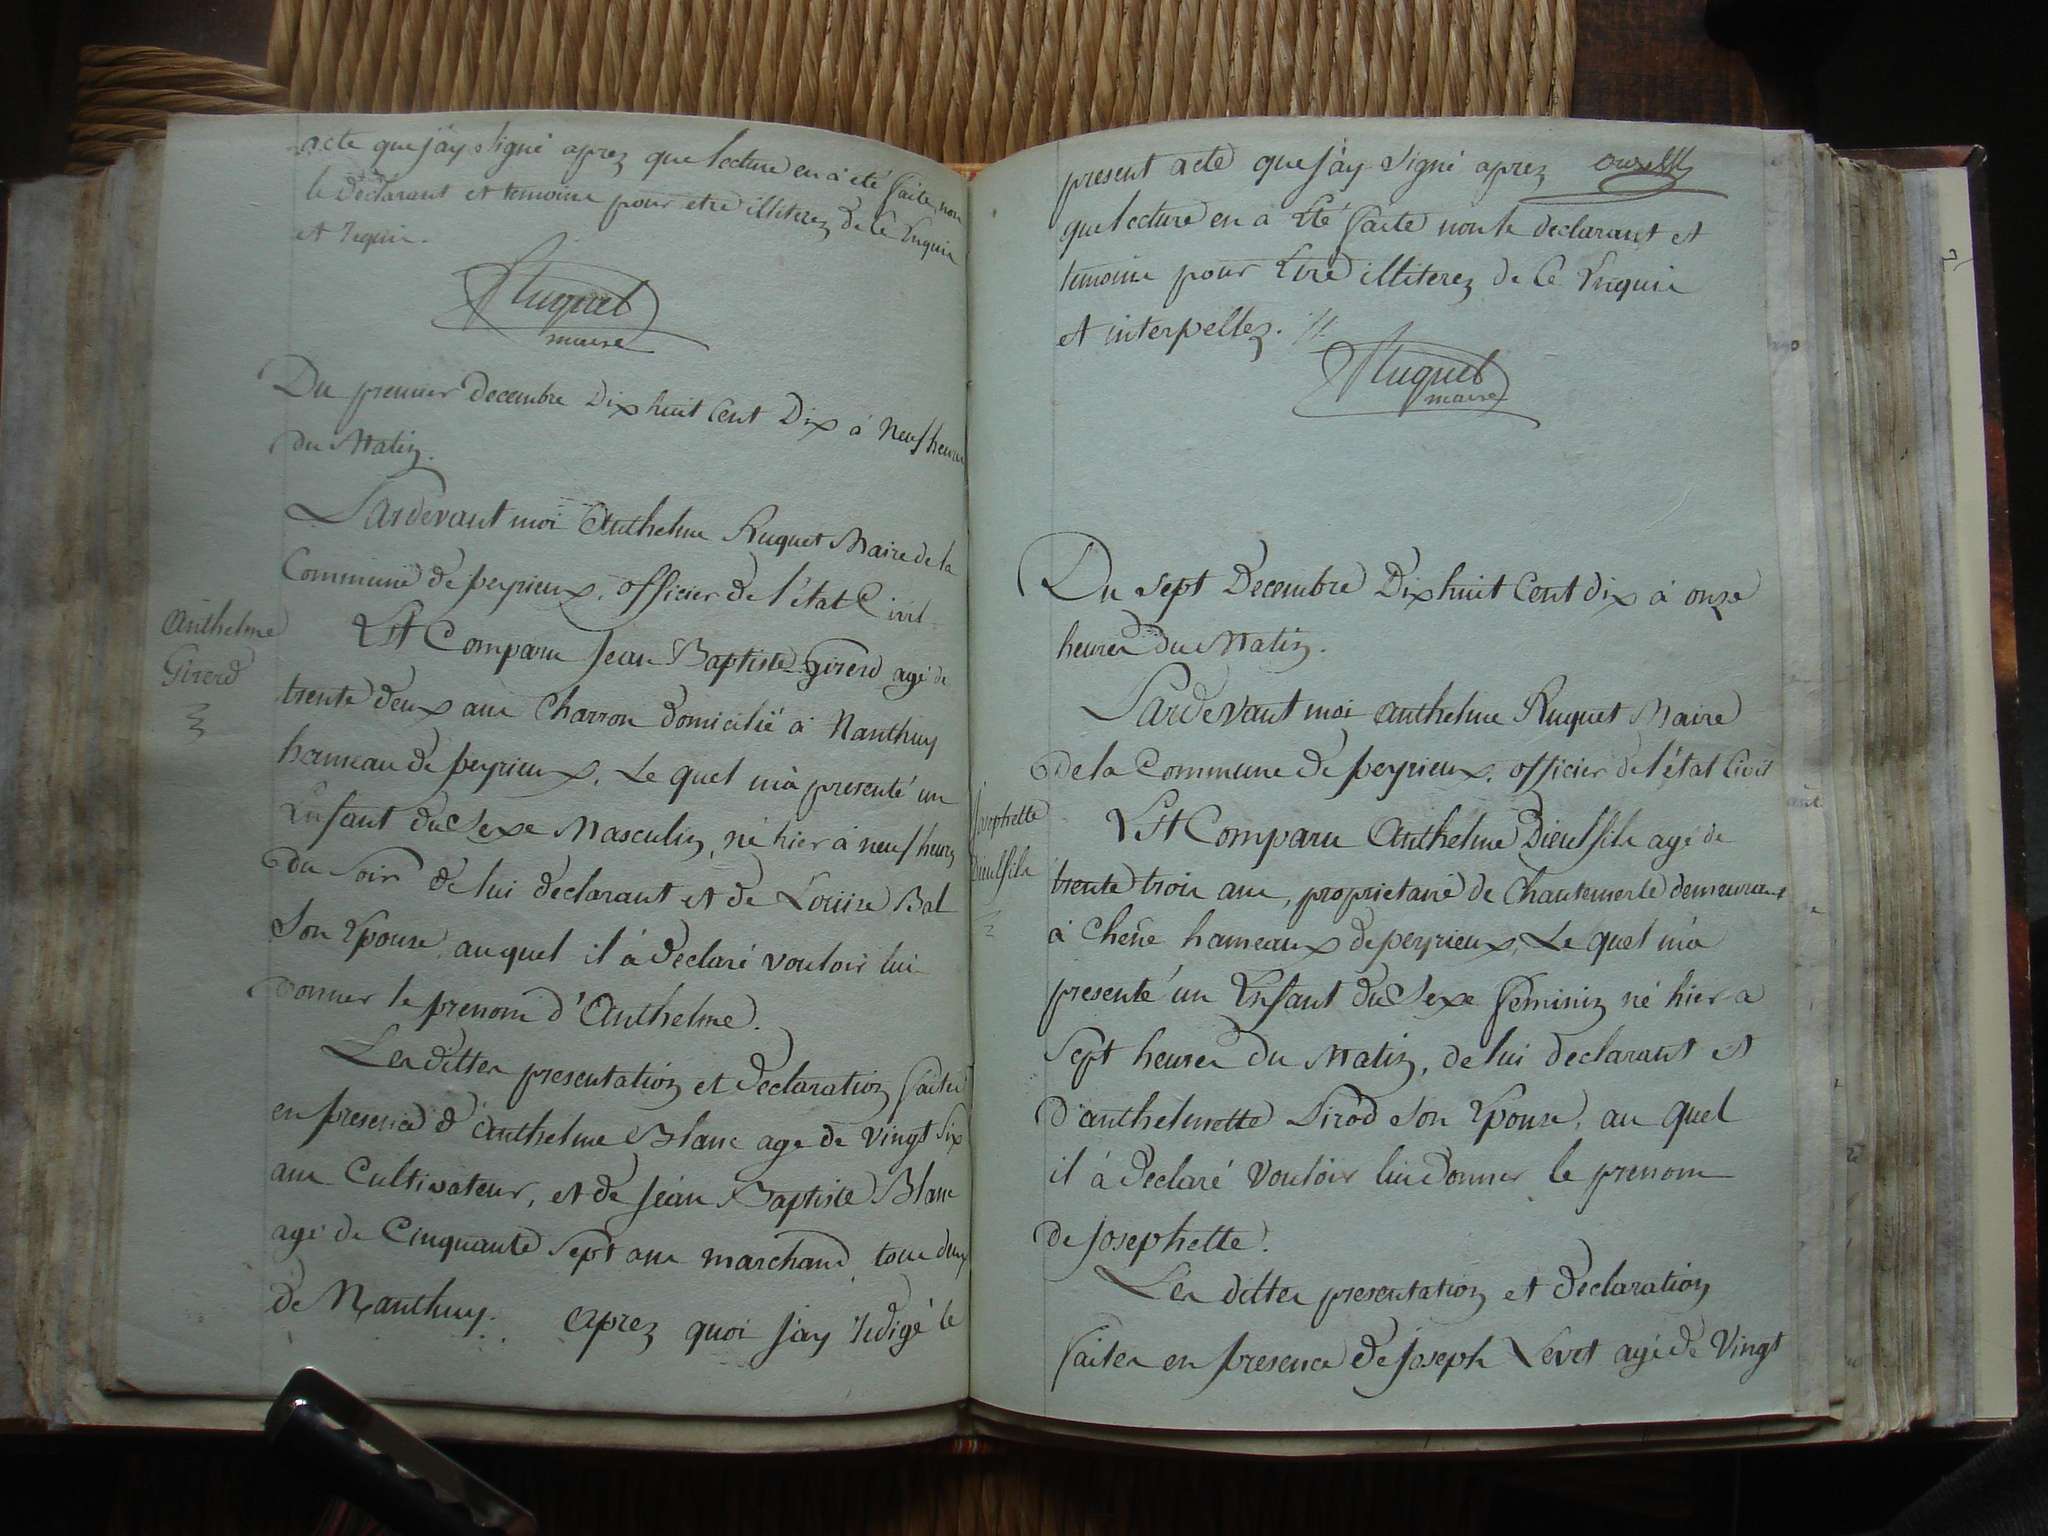 acte que j'ay signé aprez que lecture en a été faite, non
le déclarant et temoins pour etre illiterez de ce Enquis
et requis.
Ruquet
maire
Du premier decembre Dix huit Cent Dix à Neuf heures
du Matin.
Pardevant moi Anthelme Ruquet Maire de la
Commune de peyrieux, officier de l'état Civil
Est Comparu Jean Baptiste Girerd agé de
Anthelme
Girerd
trente deux ans Charron domicilié à Nanthuy
hameau de peyrieux, Le quel m'a presenté un
Enfant du Sexe Masculin, né hier à neuf heures
du soir de lui declarant et de Louise Bal
son Epouse, au quel il à declaré vouloir lui
donner le prenom d'Anthelme.
Les dittes presentation et declaration faites
en presence d'Anthelme Blanc agé de vingt six
ans Cultivateur, et de Jean Baptiste Blanc
agé de Cinquante sept ans marchand, tous deux
de Nanthuy. Aprez quoi j'ay redigé le
present acte que j'ay signé aprez
que lecture en a Eté faite non le declarant et
temoins pour Etre illiterez de Ce Enquis
et interpellez.
Ruquet
maire
Du sept Decembre Dix huit Cent dix à onze
heures du Matin.
Pardevant moi anthelme Ruquet Maire
de la Commune de peyrieux, officier de l'état Civil
Est Comparu Anthelme Dieulfils agé de
Josephette
Dieulfils
trente trois ans, proprietaire de Chantemerle demeurant
à Chêne hameaux de peyrieux, Le quel m'a
presenté un Enfant du Sexe feminin né hier a
sept heures du Matin, de lui declarant et
d'anthelmette Sirod son Epouse, au quel
il à declaré vouloir lui donner le prenom
de Josephette.
Les dittes presentation et declaration
faites en presence de Joseph Levet agé de Vingt